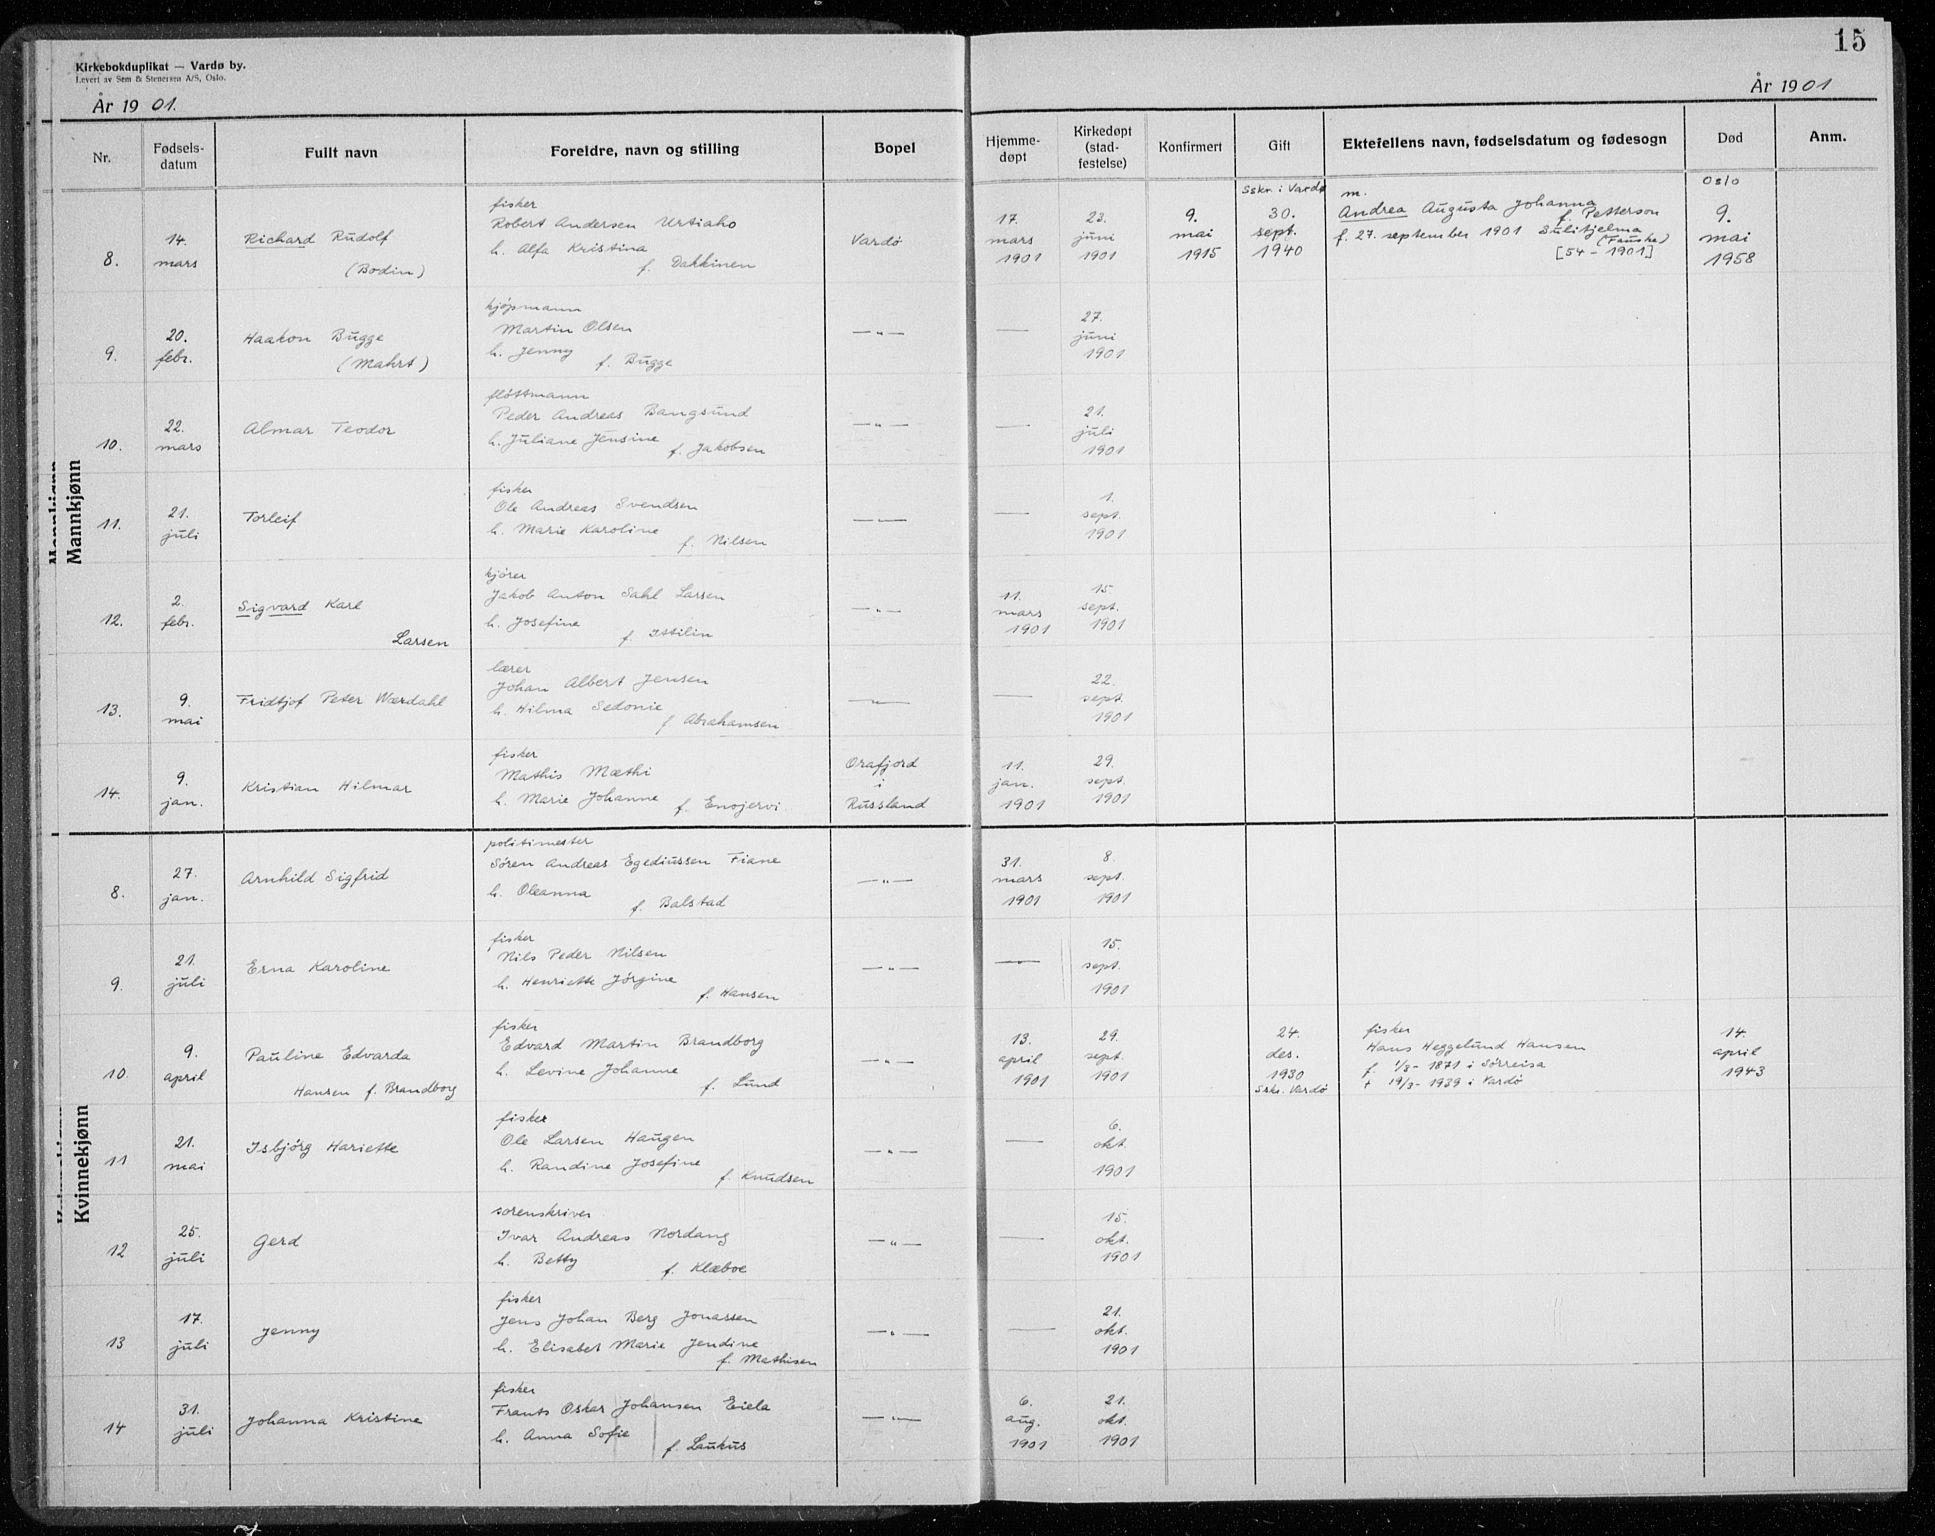 15
Kirkebokduplikat — Vardø by.
Levert av Sem & Stenersen A/S, Oslo.
År 1901.
År 1901
Nr.
Fødsels-
datum
Fullt navn
Foreldre, navn og stilling
Bopel
Hjemme-
døpt
Kirkedøpt
(stad-
festelse)
Konfirmert
Gift
Ektefellens navn, fødselsdatum og fødesogn
Død
Anm.
Mannkjønn
8.
14.
mars
Richard Rudolf
(Bodin)
fisker
Robert Andersen Urtiaho
h. Alfa Kristina
f. Dakkinen
Vardø
17.
mars
1901
23.
juni
1901
9.
mai
1915
Sskr. i Vardø
30.
sept.
1940
m.
Andrea Augusta Johanna
f. Petterson
f. 27. september 1901 Sulitjelma
(Fauske)
[54 - 1901]
Oslo
9.
mai
1958
9.
20.
febr.
Haakon Bugge
(Mahrt)
kjøpmann
Martin Olsen
h. Jenny
f. Bugge
— " —
—
27.
juni
1901
10.
22.
mars
Almar Teodor
fløttmann
Peder Andreas Bangsund
h. Juliane Jensine
f. Jakobsen
— " —
—
21.
juli
1901
11.
21.
juli
Torleif
fisker
Ole Andreas Svendsen
h. Marie Karoline
f. Nilsen
— " —
—
1.
sept.
1901
12.
2.
febr.
Sigvard Karl
Larsen
kjører
Jakob Anton Sahl Larsen
h. Josefine
f. Ittilin
— " —
11.
mars
1901
15.
sept.
1901
13.
9.
mai
Fridtjof Peter Wærdahl
lærer
Johan Albert Jensen
h. Hilma Sedonie
f. Abrahamsen
— " —
—
22.
sept.
1901
14.
9.
jan.
Kristian Hilmar
fisker
Mathis Mæthi
h. Marie Johanne
f. Enojervi
Orafjord
i
Russland
11.
jan.
1901
29.
sept.
1901
Kvinnekjønn
8.
27.
jan.
Arnhild Sigfrid
politimester
Søren Andreas Egediussen Fiane
h. Oleanna
f. Balstad
— " —
31.
mars
1901
8.
sept.
1901
9.
21.
juli
Erna Karoline
fisker
Nils Peder Nilsen
h. Henriette Jørgine
f. Hansen
— " —
—
15.
sept.
1901
10.
9.
april
Pauline Edvarda
Hansen f. Brandborg
fisker
Edvard Martin Brandborg
h. Levine Johanne
f. Lund
— " —
13.
april
1901
29.
sept.
1901
24.
des.
1930
Sskr. Vardø
fisker
Hans Heggelund Hansen
f. 1/8 - 1871 i Sørreisa
+ 19/3 - 1939 i Vardø
14.
april
1943
11
21.
mai
Isbjörg Hariette
fisker
Ole Larsen Haugen
h. Randine Josefine
f. Knudsen
— " —
—
6.
okt.
1901
12
25.
juli
Gerd
sorenskriver
Ivar Andreas Nordang
h. Betty
f. Klæboe
— " —
—
15.
okt.
1901
13
17.
juli
Jenny
fisker
Jens Johan Berg Jonassen
h. Elisabet Marie Jendine
f. Mathisen
— " —
—
21.
okt.
1901
14
31.
juli
Johanna Kristine
fisker
Frants Oskar Johansen Eiela
h. Anna Sofie
f. Laukus
— " —
6.
aug.
1901
21.
okt.
1901